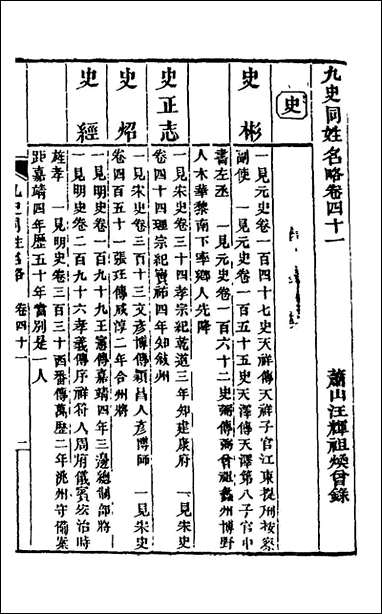 九史同姓名略卷四十一
蕭山汪輝祖煥曾錄
史
史彬
一見元史卷一百四十七史天祥傳天祥子官江東提刑按察
副使　一見元史卷一百五十五史天澤傳天澤第八子官中
書左丞　一見元史卷一百六十二史弼傳弼曾祖蠡州博野
人木華黎南下率鄉人先降
史正志
一見宋史卷三十四孝宗紀乾道三年知建康府　一見宋史
卷四十四理宗紀寶祐四年知敘州
史炤
一見宋史卷三百十三文彥博傳潁昌人彥博師　一見宋史
卷四百五十一張珏傳咸淳二年合州將
史經
一見明史卷一百九十九王憲傳嘉靖四年三邊總制部將
一見明史卷二百九十六孝義傳序祥符人周府儀賓弘治時
旌孝　一見明史卷三百三十西番傳萬歷二年洮州守備案
距嘉靖四年歷五十年當別是一人
九史同姓名略
卷四十一